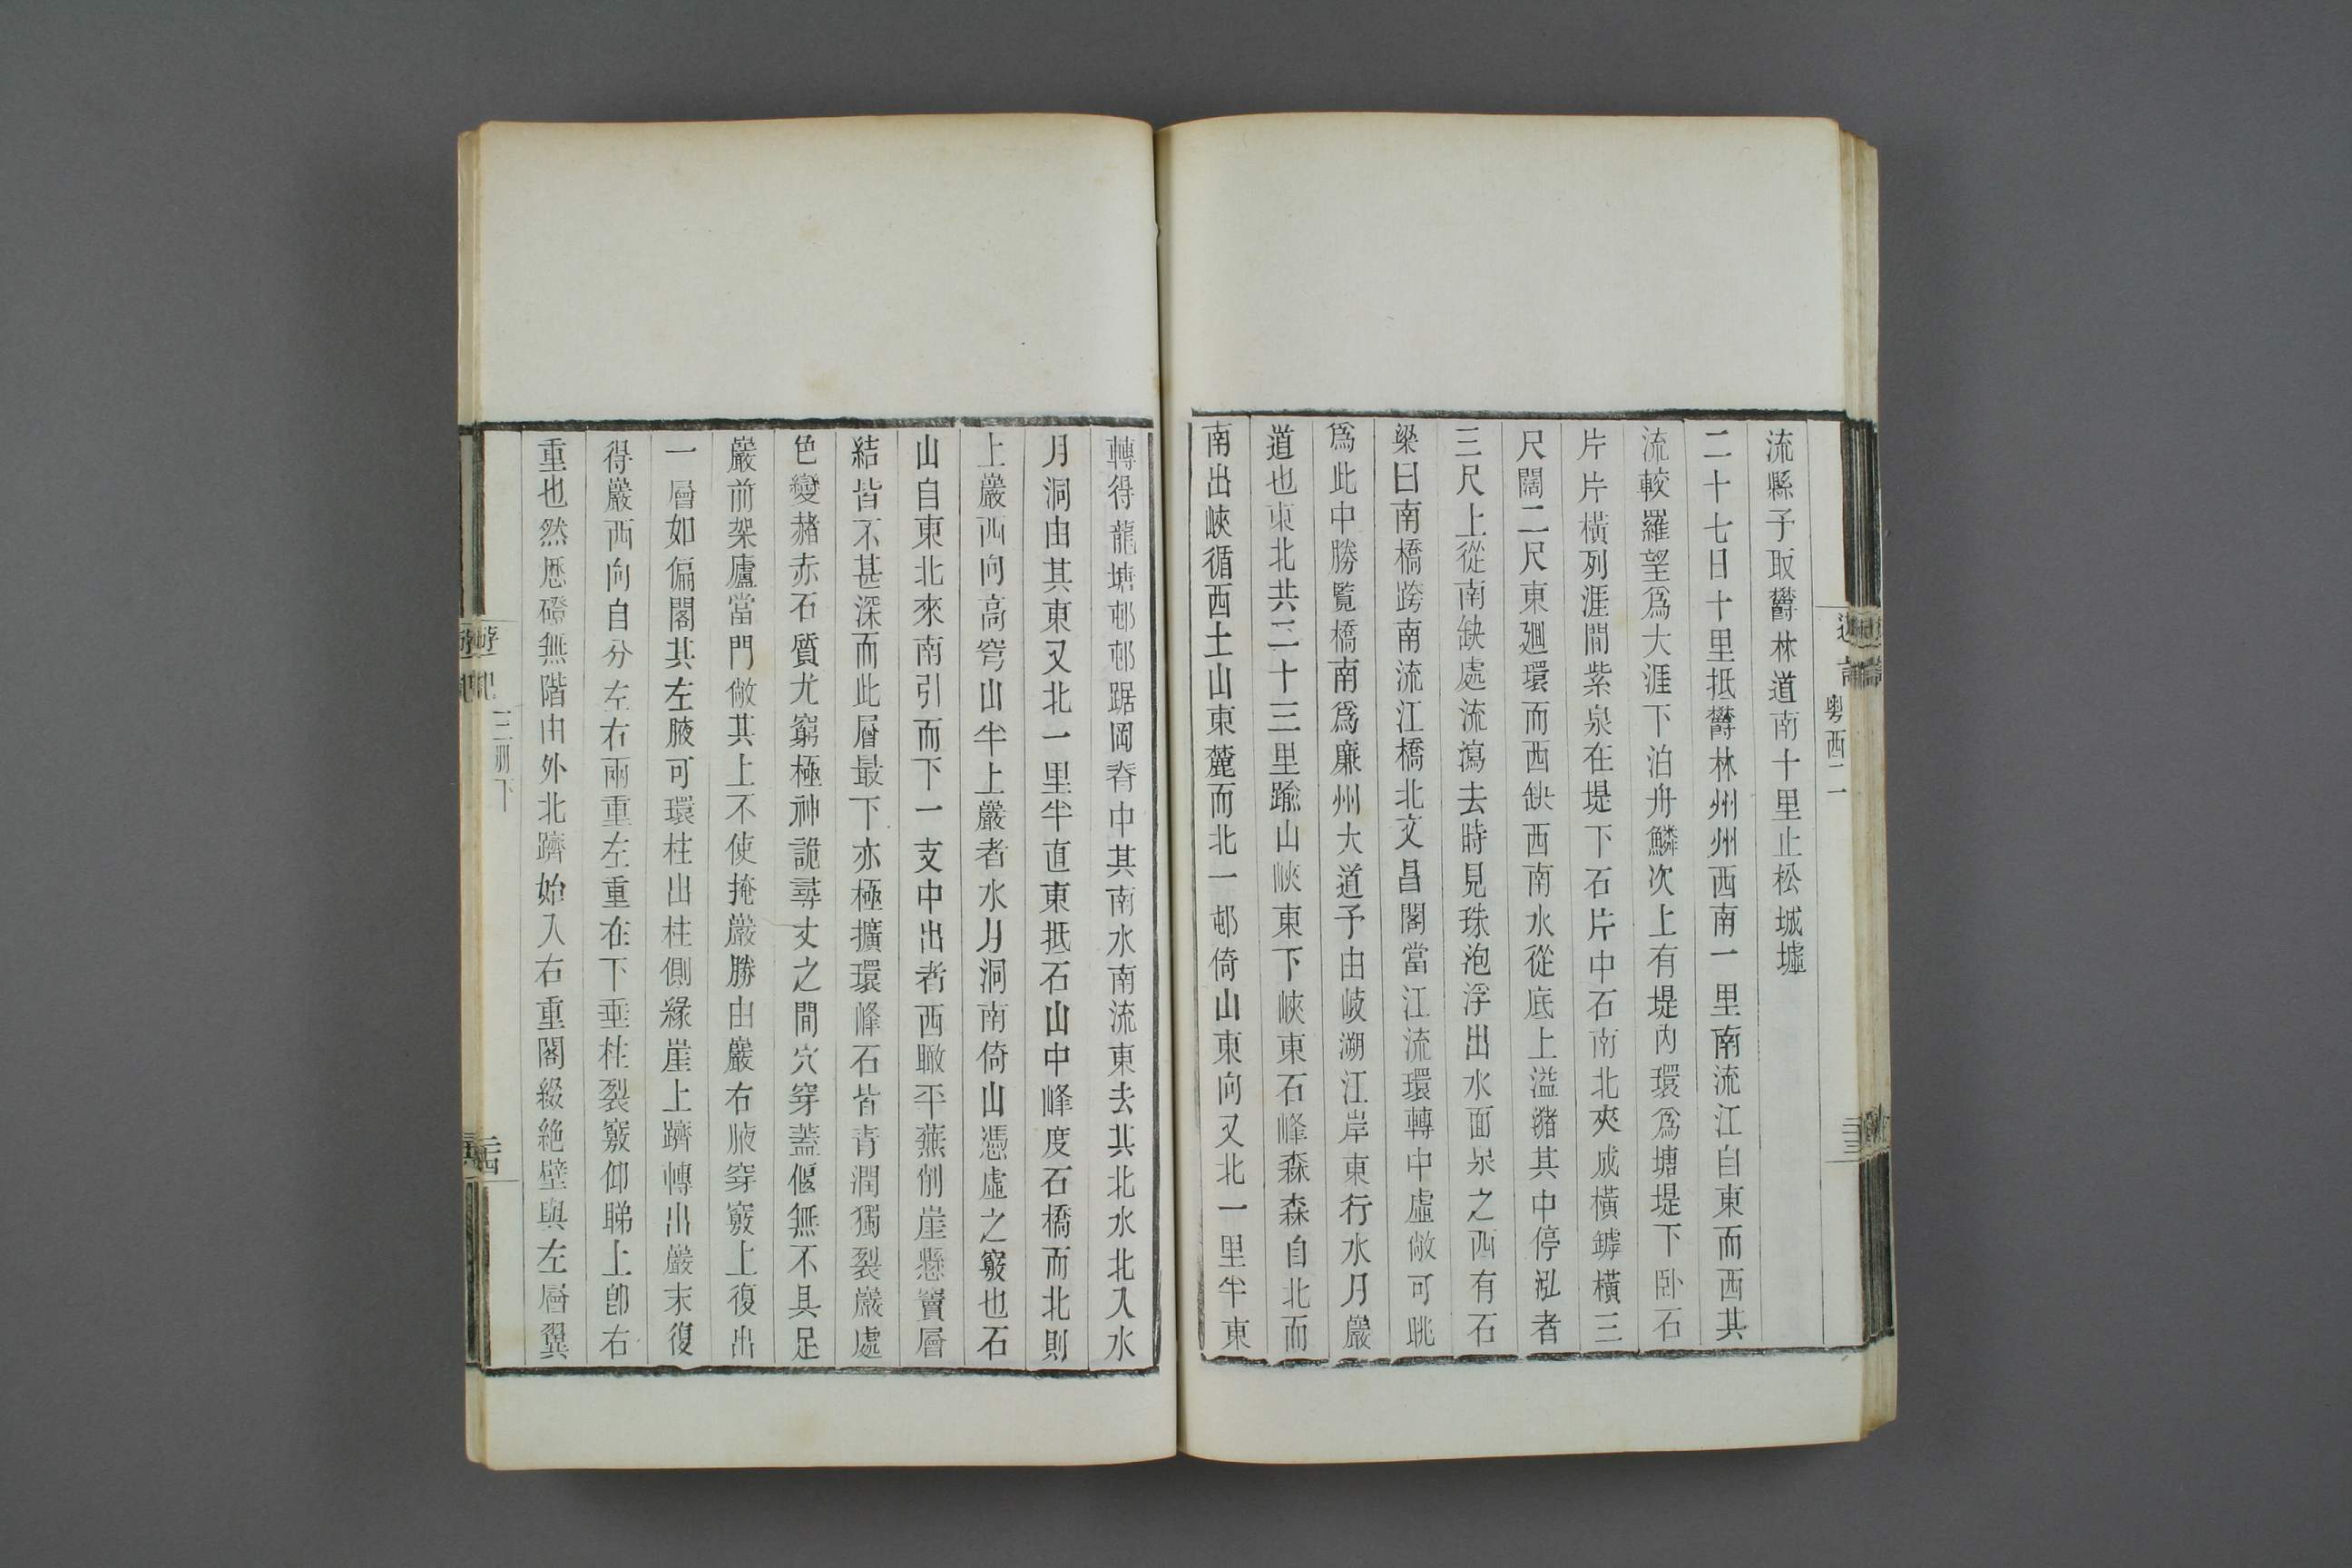 粵西二
二十三
流縣予取鬱林道南十里止松城墟
二十七日十里抵鬱林州州西南一里南流江自東而西其
流較羅望爲大涯下泊舟鱗次上有堤內環爲塘堤下卧石
片片橫列涯間紫泉在堤下石片中石南北夾成橫罅橫三
尺闊二尺東迴環而西缺西南水從底上溢瀦其中停泓者
三尺上從南缺處流瀉去時見珠泡浮出水面泉之西有石
梁曰南橋跨南流江橋北文昌閣當江流環轉中虛敞可眺
爲此中勝覽橋南爲廉州大道予由岐溯江岸東行水月巖
道也東北共二十三里踰山峽東下峽東石峰森森自北而
南出峽循西土山東麓而北一邨倚山東向又北一里半東
轉得龍塘邨邨踞岡脊中其南水南流東去其北水北入水
月洞由其東又北一里半直東抵石山中峰度石橋而北則
上巖西向高穹山半上巖者水月洞南倚山憑虛之竅也石
山自東北來南引而下一支中出者西瞰平蕪削崖懸竇層
結皆不甚深而此層最下亦極擴環峰石皆青潤獨裂巖處
色變赭赤石質尤窮極神詭尋丈之間穴穿蓋偃無不具足
巖前架廬當門敞其上不使掩巖勝由巖右腋穿竅上復出
一層如偏閣其左腋可環柱出柱側緣崖上躋轉出巖末復
得巖西向自分左右兩重左重在下垂柱裂竅仰睇上卽右
重也然歷磴無階由外北躋始入右重閣綴絶壁與左層翼
遊記
三刪下
二十四